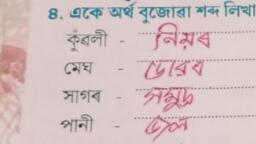 ৪. একে অৰ্থ বুজোৱা শব্দ লিখা
কুঁৱলী - নিয়ৰ
মেঘ - ডাৱৰ
সাগৰ - সমুদ্ৰ
পানী - জল